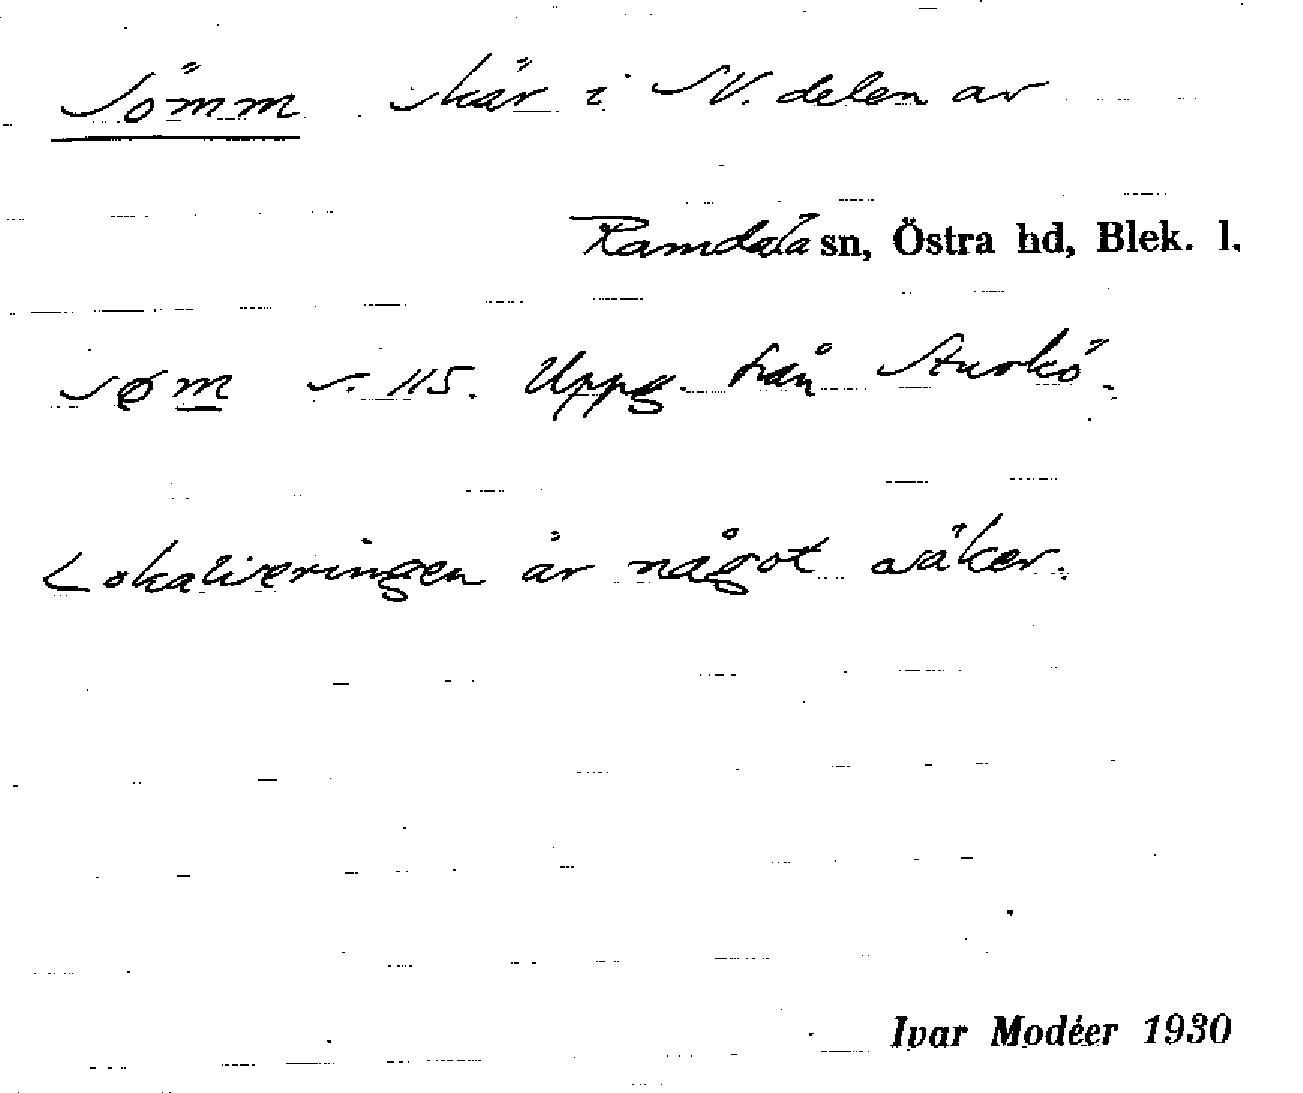 Sömm skär i SV. delen av
Ramdala sn, Östra hd, Blek. l.
søm s. 115. Uppg. från Sturkö.
Lokaliseringen är något osäker.
Ivar Modéer 1930